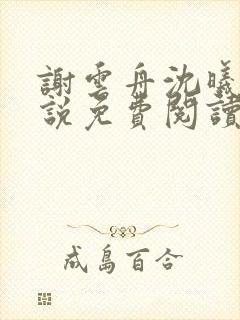 謝雲舟沈曦
說免費閱讀
成島百合